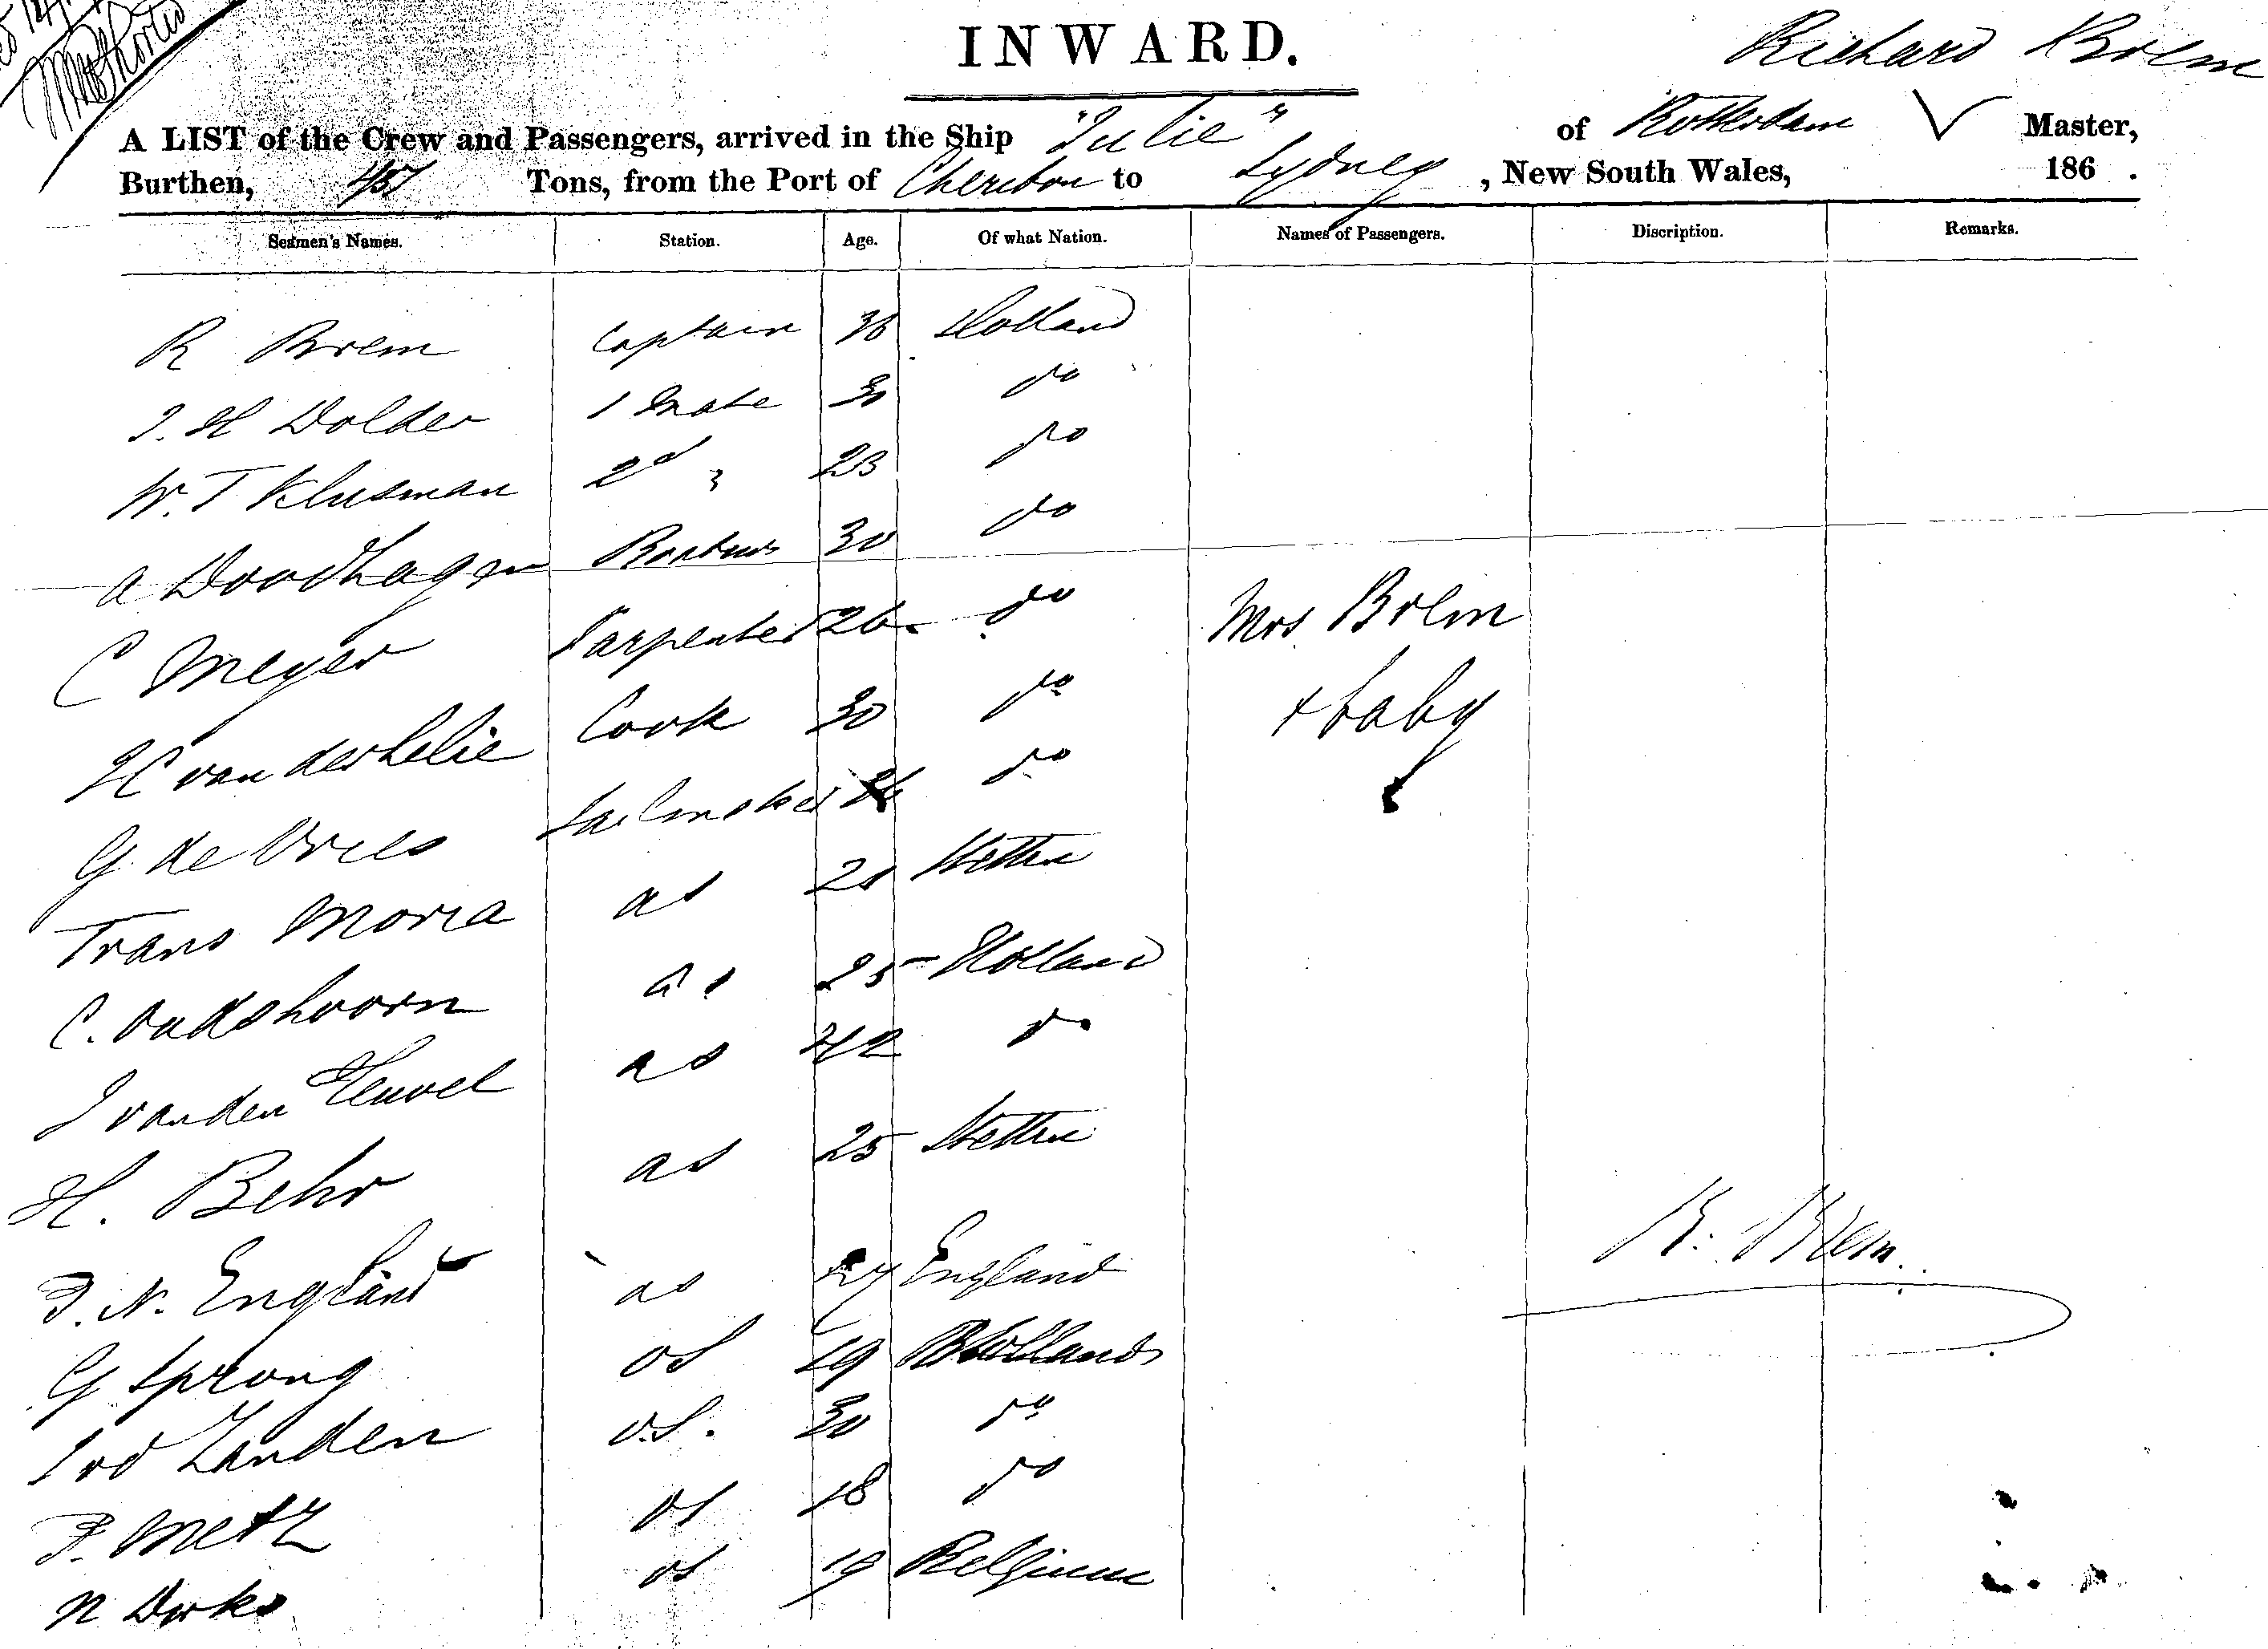 INWARD.
Richard Brem
A LIST of the Crew and Passengers, arrived in the Ship "Julie" of Rotterdam Master,
Burthen, 457 Tons, from the Port of Cheribon to Sydney, New South Wales, 186 .
Seamen's Names. Station. Age. Of what Nation. Names of Passengers. Discription. Remarks.
R Brem Captain 36 Holland
J. H Dolder 1 Mate 30 do
W. T Klusman 2d " 23 do
A Doodhagen 30 do
C Meyer Carpenter 26 do Mrs. Brem
H van der Lelie Cook 30 do + baby
G de Vries Sailmaker do
Frans Moria as 21 Stettin
C. Oudshoorn as 25 Holland
J van den Heuvel as 42 do
H. Behr as 25 Stettin
R. Brem
F. N. England as 24 England
G Sprong os 19 Holland
J v d Zanden o.S. 30 do
F. Metz os 18 do
N Dirks os 19 Belgium